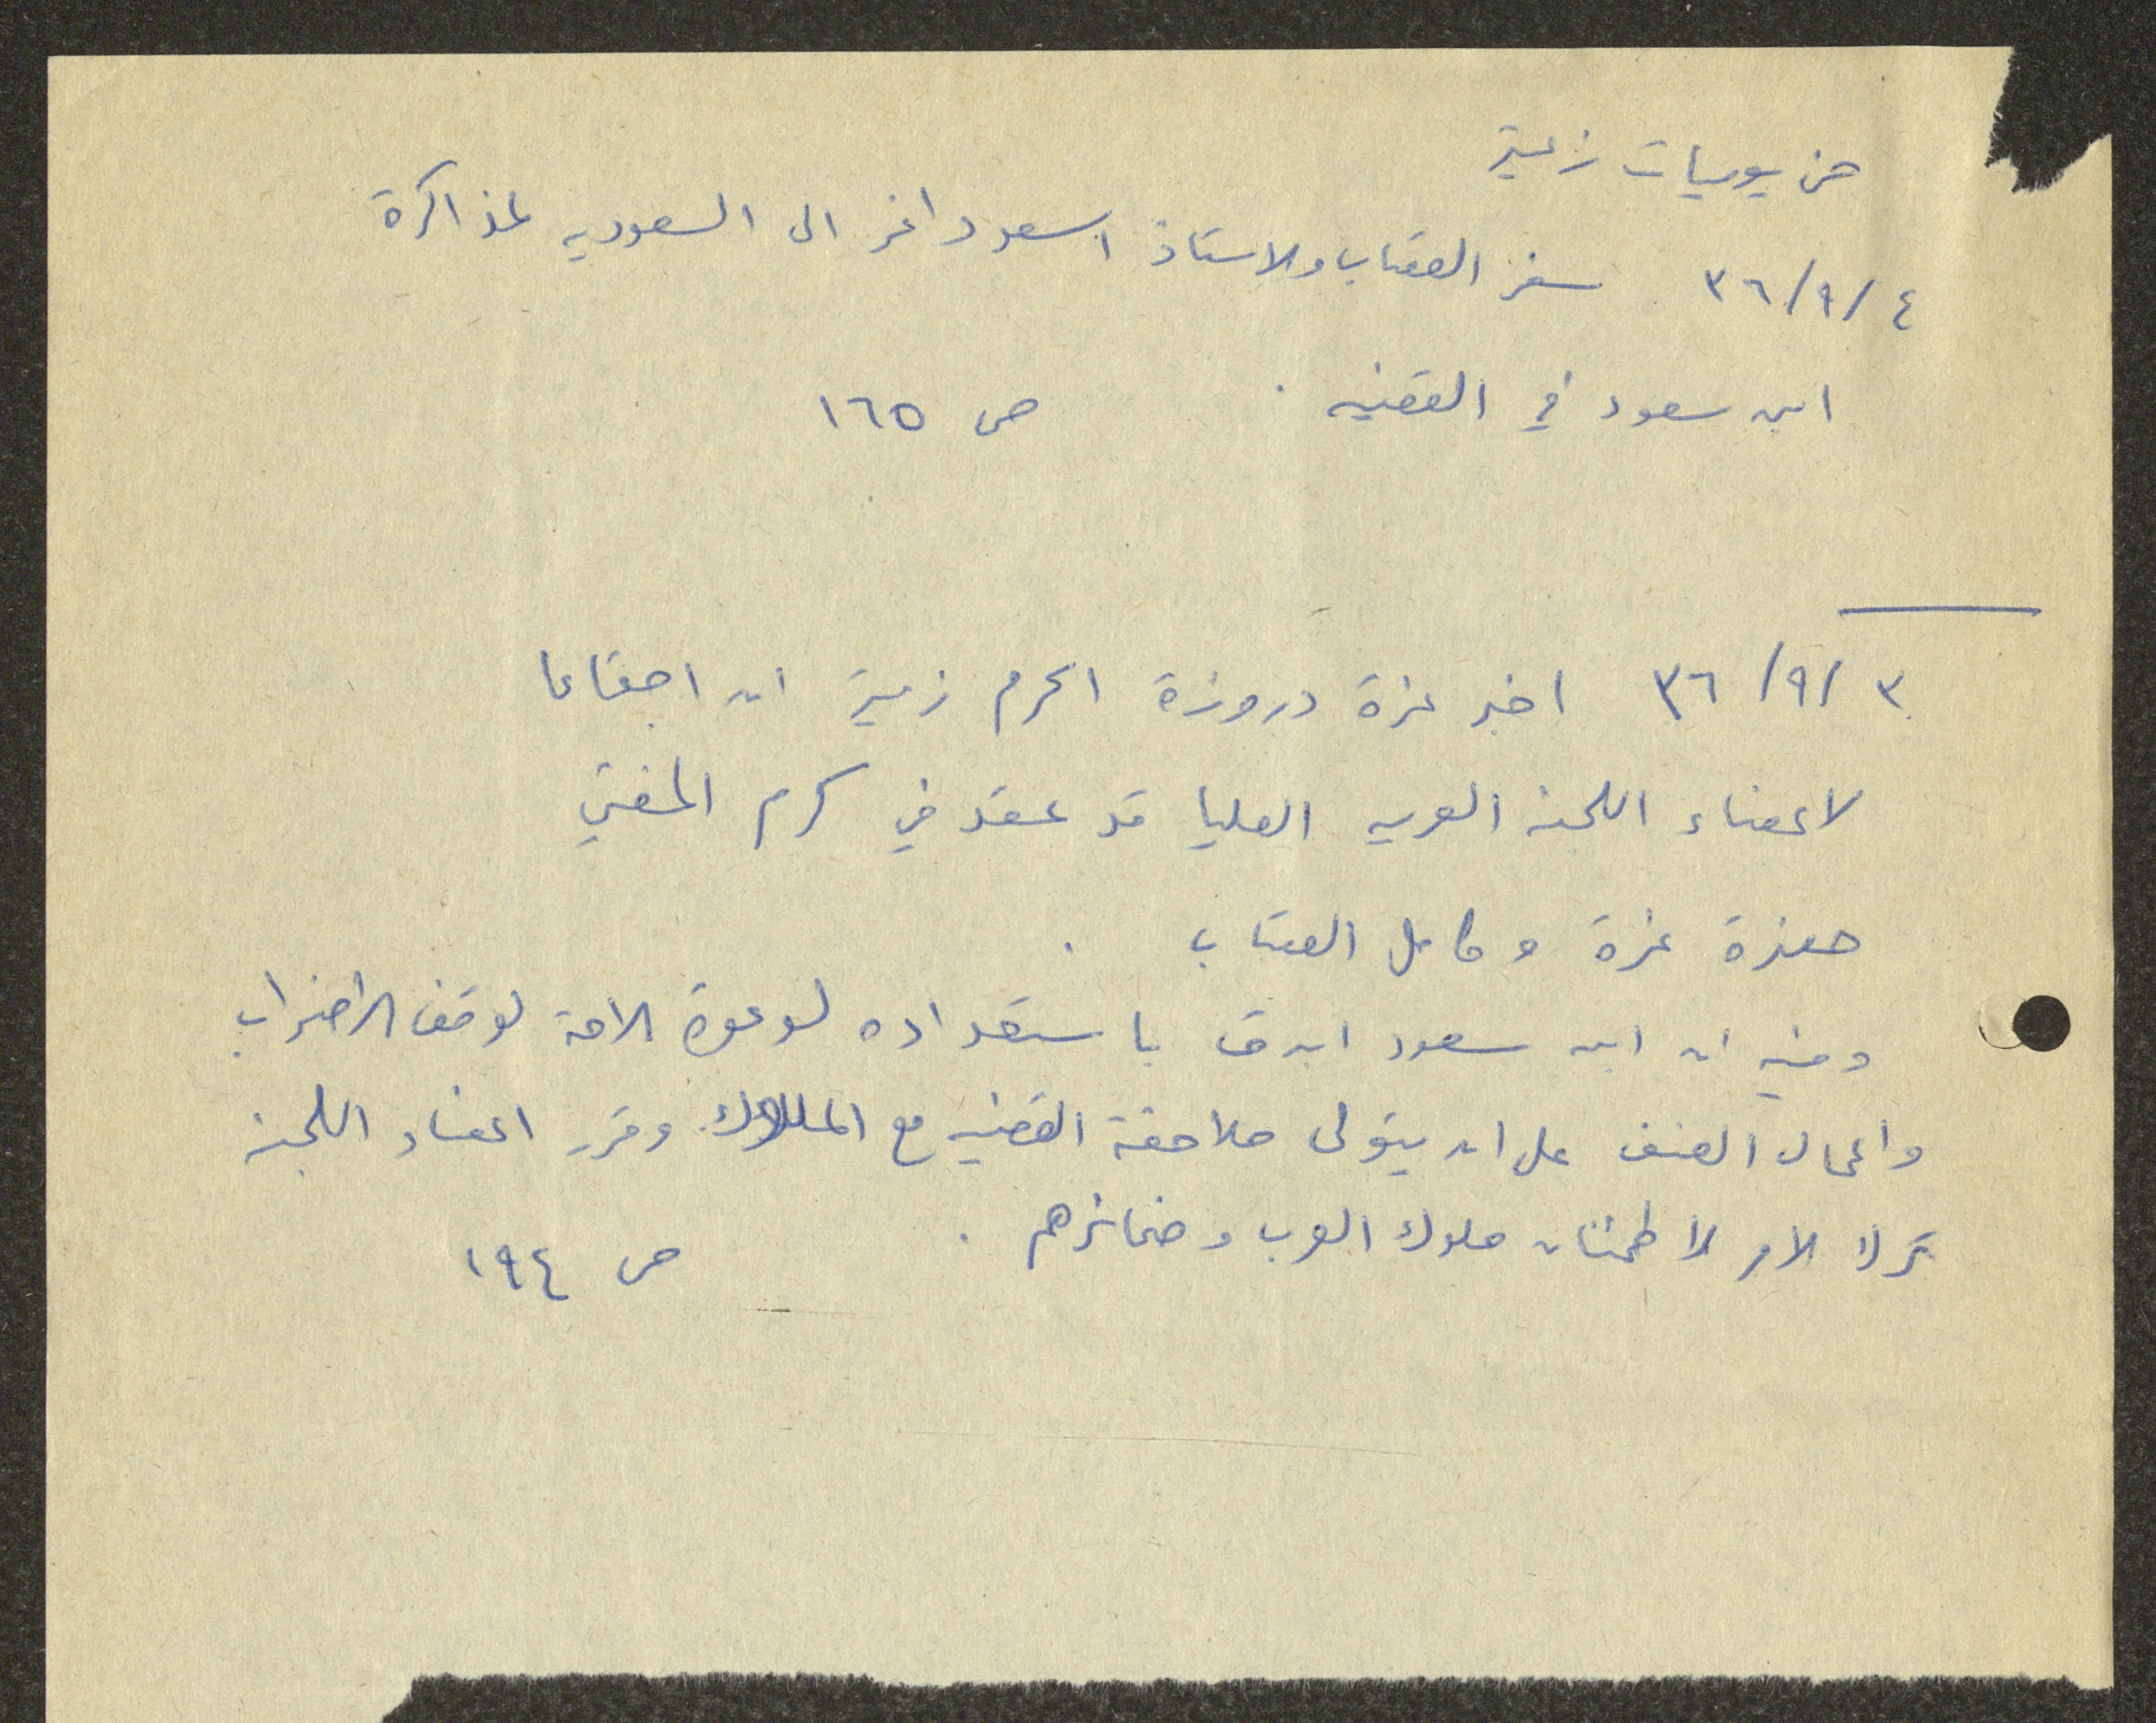 من يوميات زعيتر
٣٦/٩/٤ سفر القصاب والاستاذ اسعد داغر الى السعوديه لمذاكرة
ابن سعود في القضيه . ص ١٦٥
٣٦/٩/٣ اخبر عزة دروزة اكرم زعيتر ان اجتماعا
لاعضاء اللجنه العربيه العليا قد عقد في كرم المفتي
حضره عزة وكامل القصاب .
وفيه ان ابن سعود ابرق باستعداده لدعوة الامة لوقف الاضراب
واعمال العنف على ان يتولى ملاحقة القضيه مع الملوك وقرر اعضاء اللجنه
ترك الامر لاطمئنان ملوك العرب وضمائرهم . ص ١٩٤